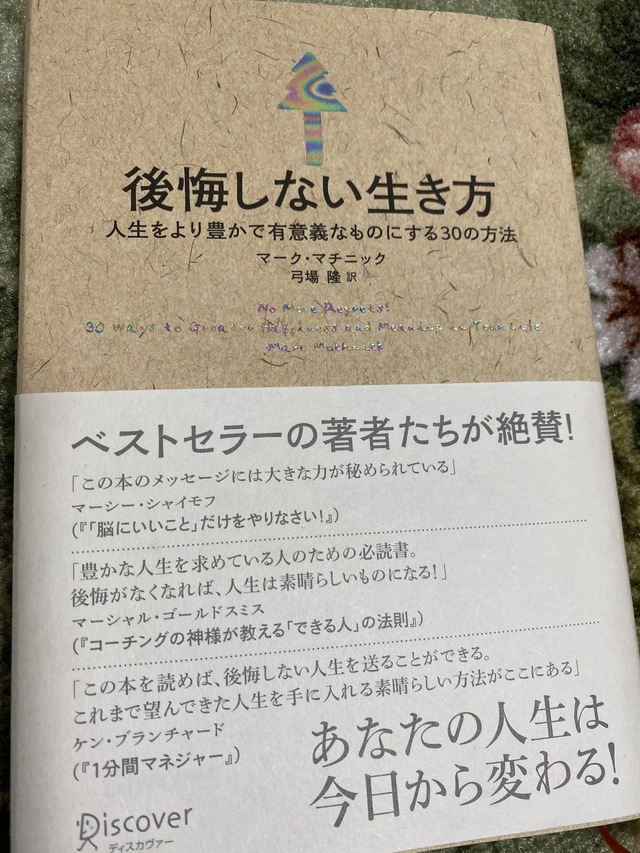 後悔しない生き方
人生をより豊かで有意義なものにする30の方法
マーク・マチニック
弓場 隆 訳
No More Regrets!
30 Ways to Greater Happiness and Meaning in Your Life
Marc Muchnick
ベストセラーの著者たちが絶賛!
「この本のメッセージには大きな力が秘められている」
マーシー・シャイモフ
(『「脳にいいこと」だけをやりなさい!』)
「豊かな人生を求めている人のための必読書。
後悔がなくなれば、人生は素晴らしいものになる!」
マーシャル・ゴールドスミス
(『コーチングの神様が教える「できる人」の法則』)
「この本を読めば、後悔しない人生を送ることができる。
これまで望んできた人生を手に入れる素晴らしい方法がここにある」
ケン・ブランチャード
(『1分間マネジャー』)
あなたの人生は
今日から変わる!
Discover
ディスカヴァー